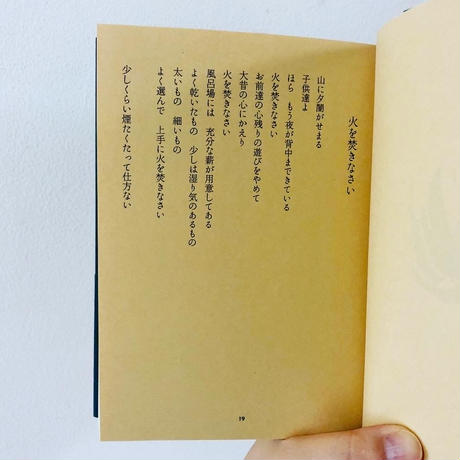 火を焚きなさい
山に夕闇がせまる
子供達よ
ほら　もう夜が背中まできている
火を焚きなさい
お前達の心残りの遊びをやめて
大昔の心にかえり
火を焚きなさい
風呂場には　充分な薪が用意してある
よく乾いたもの　少しは湿り気のあるもの
太いもの　細いもの
よく選んで　上手に火を焚きなさい
少しくらい煙たくたって仕方ない
19